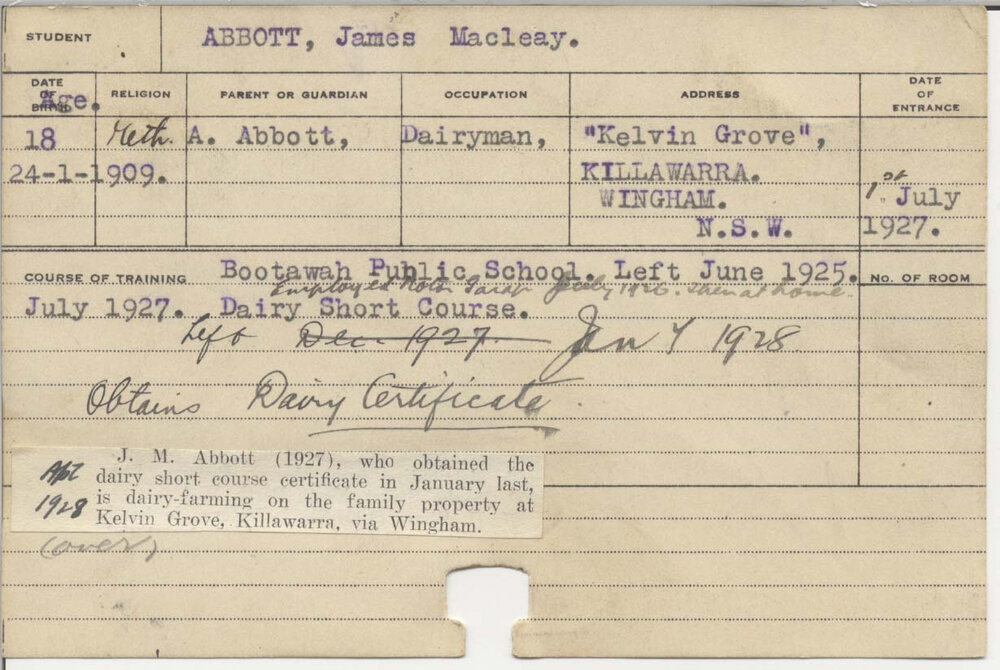 STUDENT ABBOTT, James Macleay.
DATE OF BIRTH Age. RELIGION PARENT OR GUARDIAN OCCUPATION ADDRESS DATE OF ENTRANCE
18 Meth. A. Abbott, Dairyman, "Kelvin Grove",
24-1-1909. KILLAWARRA.
WINGHAM. 1st July
N.S.W. 1927.
COURSE OF TRAINING Bootawah Public School. Left June 1925. No. OF ROOM
Employed July 1926. then at home.
July 1927. Dairy Short Course.
Left Dec. 1927. Jan 7 1928
Obtains Dairy Certificate.
J. M. Abbott (1927), who obtained the
Apl dairy short course certificate in January last,
1928 is dairy-farming on the family property at
Kelvin Grove, Killawarra, via Wingham.
(over)